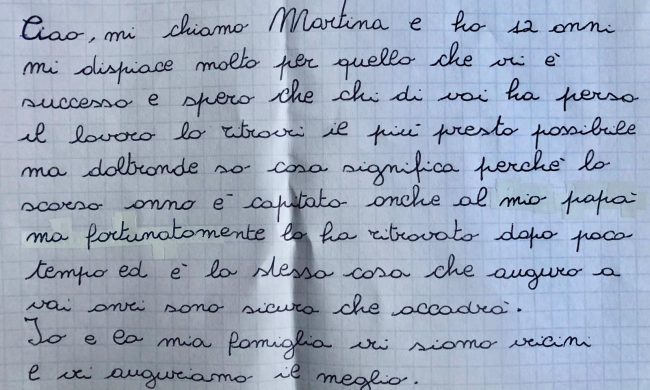 Ciao, mi chiamo Martina e ho 12 anni
mi dispiace molto per quello che vi è
successo e spero che chi di voi ha perso
il lavoro lo ritrovi il più presto possibile
ma daltronde so cosa significa perchè lo
scorso anno è capitato anche al mio papà
ma fortunatamente lo ha ritrovato dopo poco
tempo ed è la stessa cosa che auguro a
voi anzi sono sicura che accadrà.
Io e la mia famiglia vi siamo vicini
e vi auguriamo il meglio.